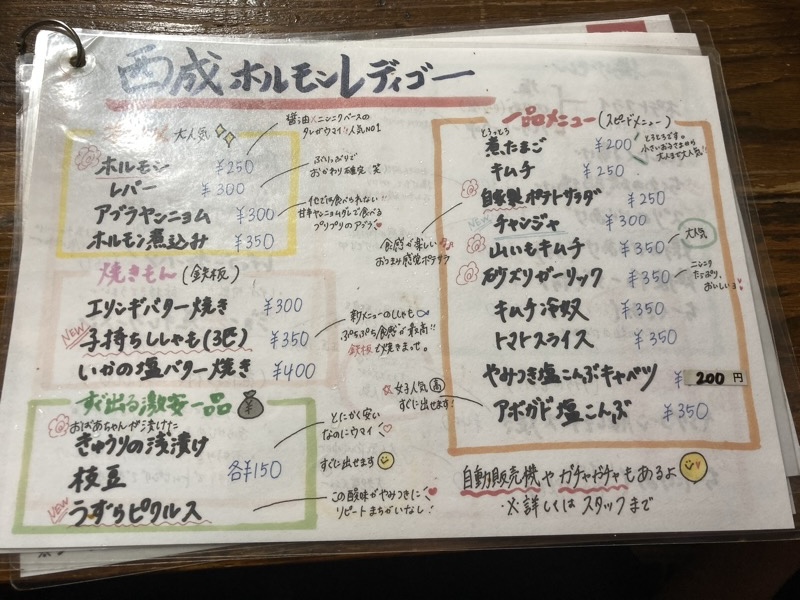 西成ホルモンレディゴー
大人気
醤油×ニンニクベースの
タレがウマイ!!人気NO1
ホルモン ¥250
レバー ¥300
ぷりっぷりで
おかわり確定 笑
アブラヤンニョム ¥300
他では食べられない!!
甘辛ヤンニョムダレで食べる
プリプリのアブラ
ホルモン煮込み ¥350
焼きもん(鉄板)
エリンギバター焼き ¥300
NEW
子持ちししゃも(3匹) ¥350
新メニューのししゃも
ぷちぷち食感が最高!!
鉄板で焼きまっせ。
いかの塩バター焼き ¥400
すぐ出る激安一品
おばあちゃんが漬けた
きゅうりの浅漬け
枝豆
各¥150
NEW
うずらピクルス
とにかく安い
なのにウマイ
すぐに出せます
この酸味がやみつきに
リピートまちがいなし!
一品メニュー(スピードメニュー)
とろっとろ
煮たまご ¥200
とろとろです。
小さいお子さまから
大人まで大人気!!
キムチ ¥250
自家製ポテトサラダ ¥250
食感が楽しい
おつまみ感覚ポテサラ
NEW
チャンジャ ¥300
山いもキムチ ¥350
大人気
砂ズリガーリック ¥350
ニンニク
たっぷり、
おいしいヨ
キムチ冷奴 ¥350
トマトスライス ¥350
やみつき塩こんぶキャベツ ¥200円
アボガド塩こんぶ ¥350
女子人気高
すぐに出せます!
自動販売機やガチャガチャもあるよ
※詳しくはスタッフまで